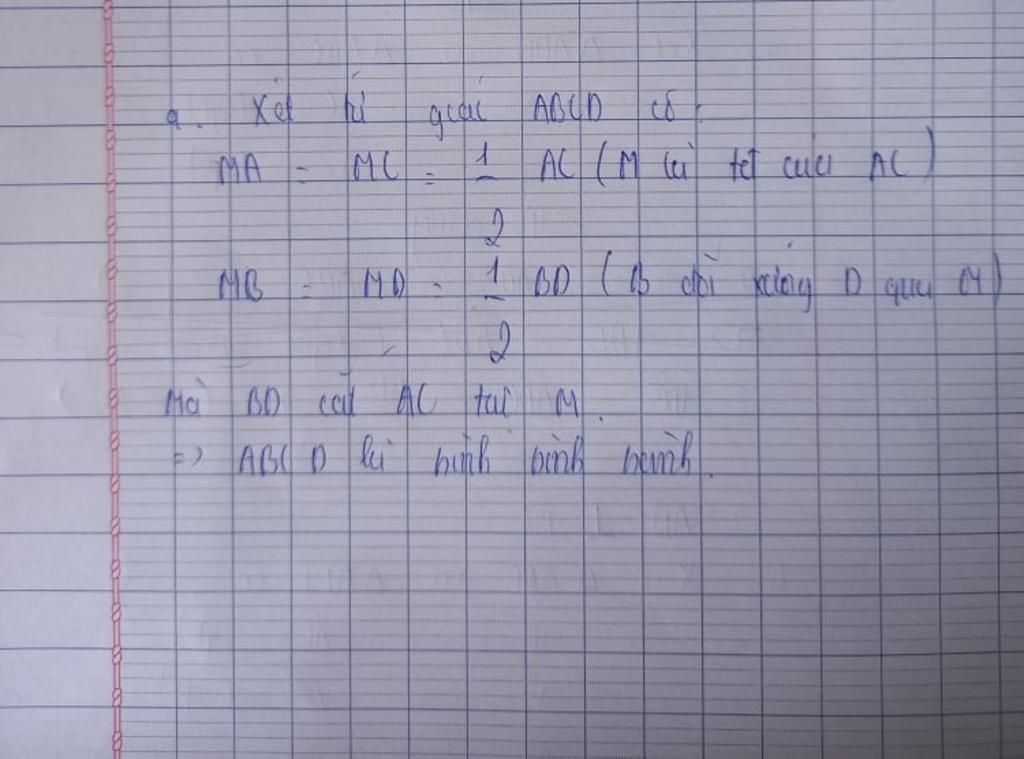 a. Xét tứ giác ABCD có:
MA = MC = 1/2 AC (M là tđ của AC)
MB = MD = 1/2 BD (B đối xứng D qua M)
Mà BD cắt AC tại M.
=> ABCD là hình bình hành.